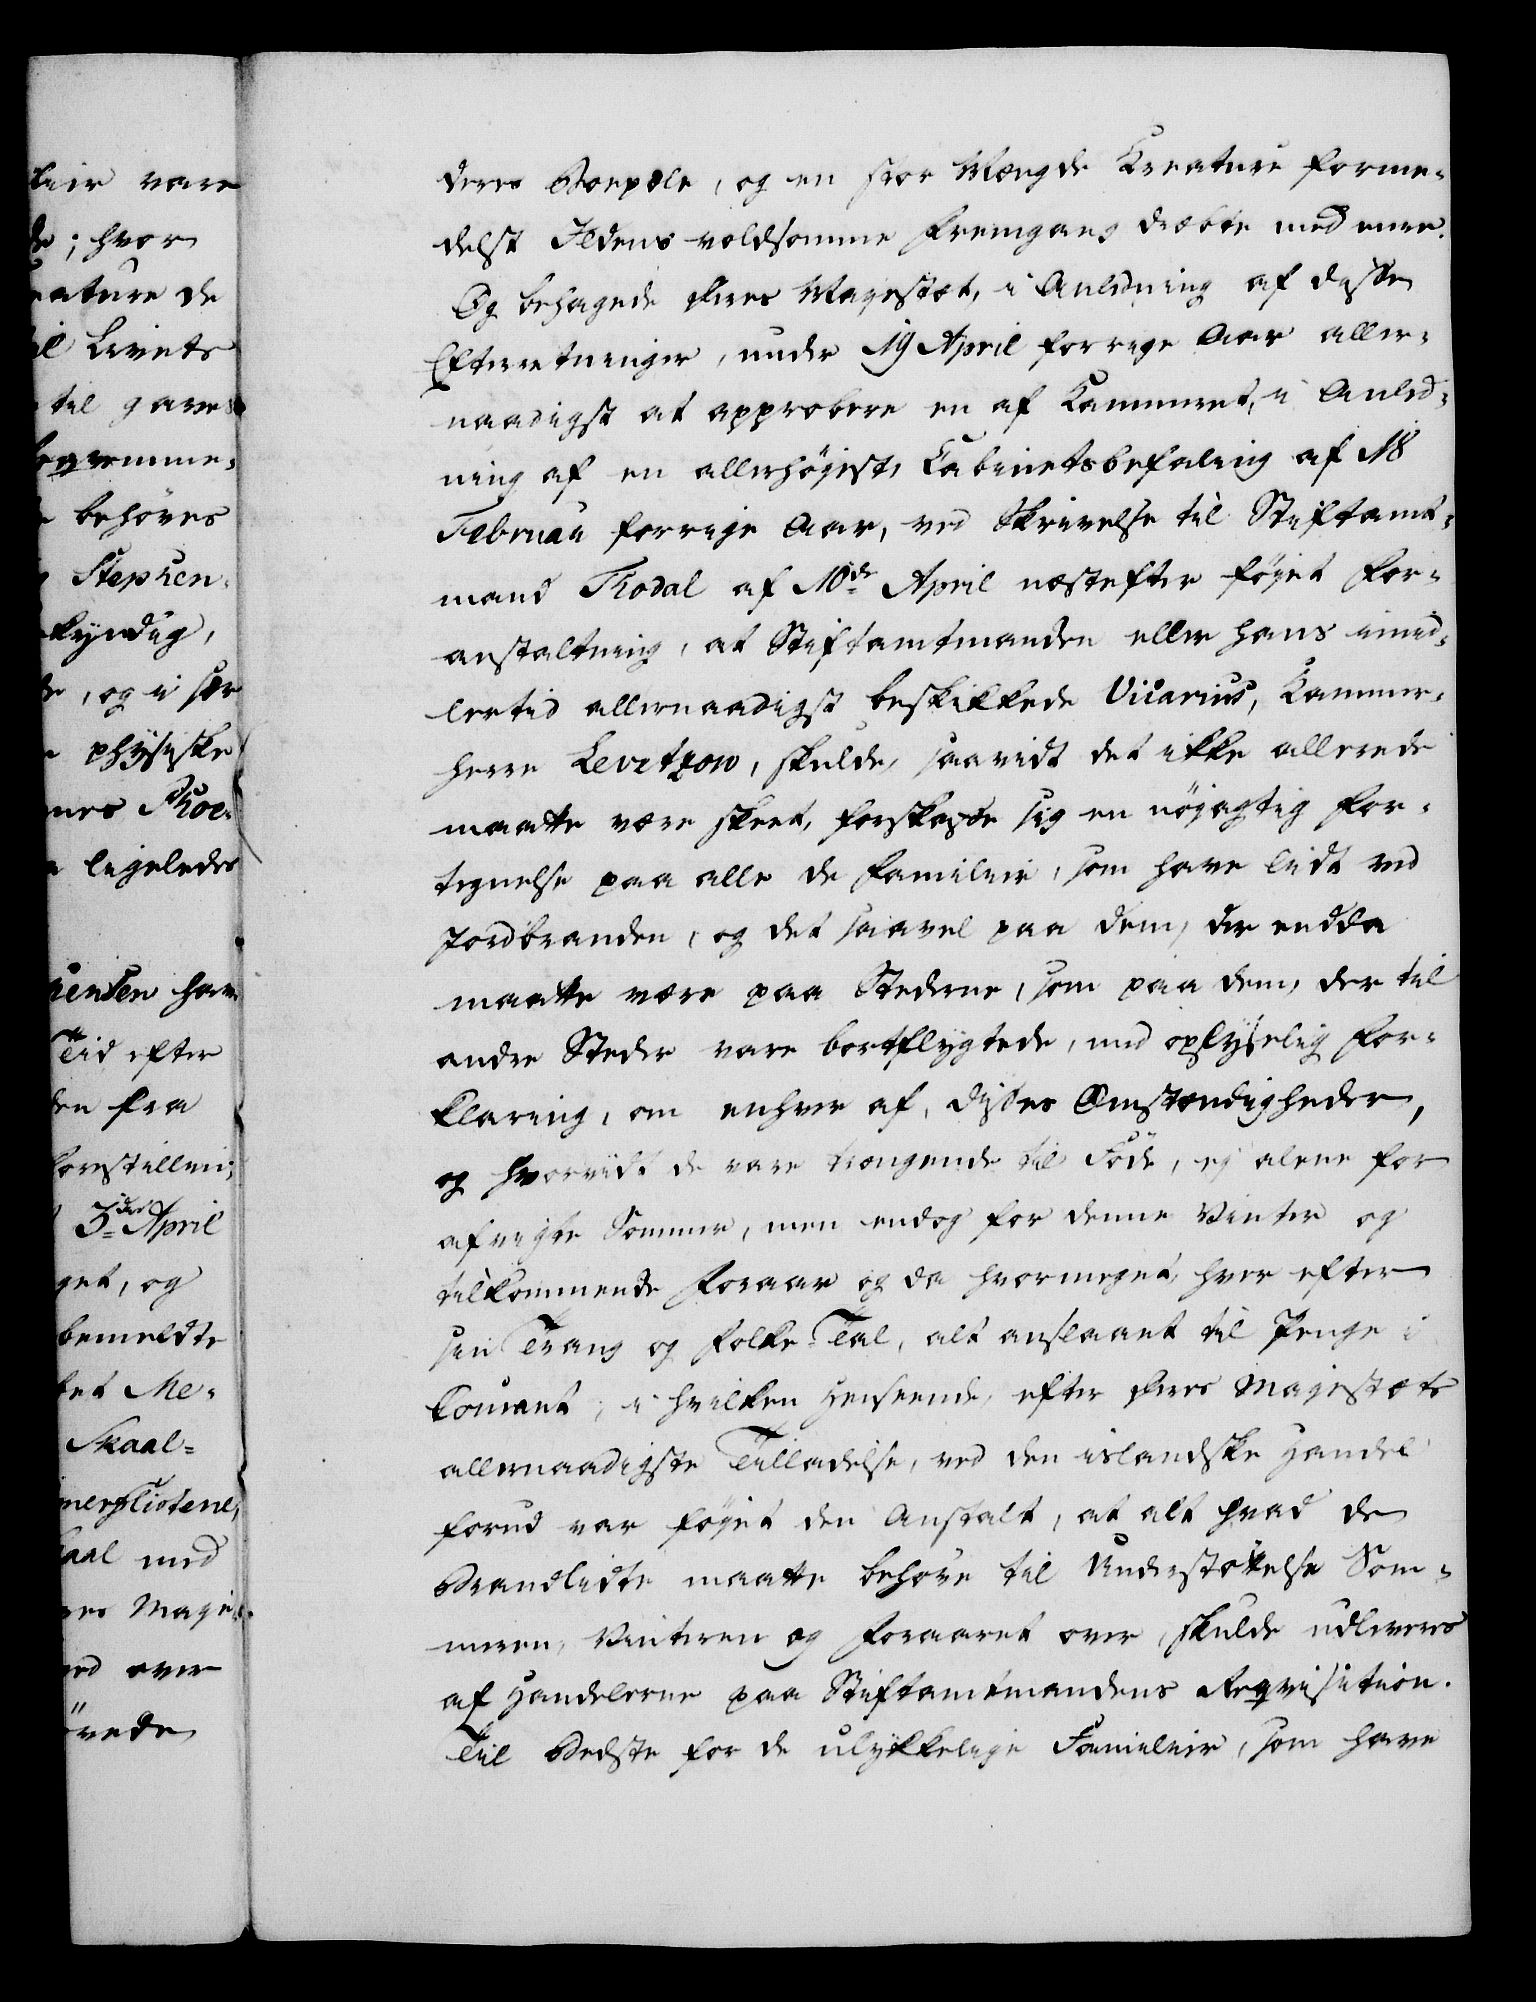 leir vare
de; hvor
eature de
al Livets
til gaves
begvemme-
behöves
Stephen-
kyndig,
de, og i sær
physiske
nes
ligeledes
hensen have
Tid efter
den fra
forestillin;
3die April
get, og
bemeldte
tet Me-
Skaal=
aal med
res Maje-
ed over
övede
deres Boepæle, og en stor Mængde Kreature forme-
delst Ildens voldsomme Fremgang dræbte med mere.
Og behagede Deres Majestæt, i Anledning af disse
Efterretninger, under 19 April forrige Aar aller-
naadigst at approbere en af Kammeret, i Anled-
ning af en allerhöjeste Cabinetsbefaling af 18
Februarii forrige Aar, ved Skrivelse til Stiftamt-
mand Thodal af 10de April næstefter föjet For-
anstaltning, at Stiftamtmanden eller hans imid-
lertid allernaadigst beskikkede Vicarius, Kammer-
herre Levetzow, skulde, saavidt det ikke allerede
maatte være skeet, forskaffe sig en nöjagtig For-
tegnelse paa alle de Familier, som have lidt ved
Jordbranden, og det saavel paa dem, der endda
maatte være paa Stederne, som paa dem, der til
andre Steder vare bortflygtede, med oplyselig For-
klaring, om enhver af disses Omstændigheder,
og hvorvidt de vare trængende til Föde, ej alene for
afvigte Sommer, men endog for denne Vinter og
tilkommende Foraar og da hvormeget, hver efter
sin Trang og Folke-Tal, alt anslaaet til Penge i
Courant; i hvilken Henseende, efter Deres Majestæts
allernaadigste Tilladelse, ved den islandske Handel
forud var föjet den Anstalt, at alt hvad de
Brandlidte maatte behöve til Understöttelse Som-
meren, Vinteren og Foraaret over, skulde udleveres
af Handelerne paa Stiftamtmandens Reqvisition.
Til Bedste for de ulykkelige Familier, som have